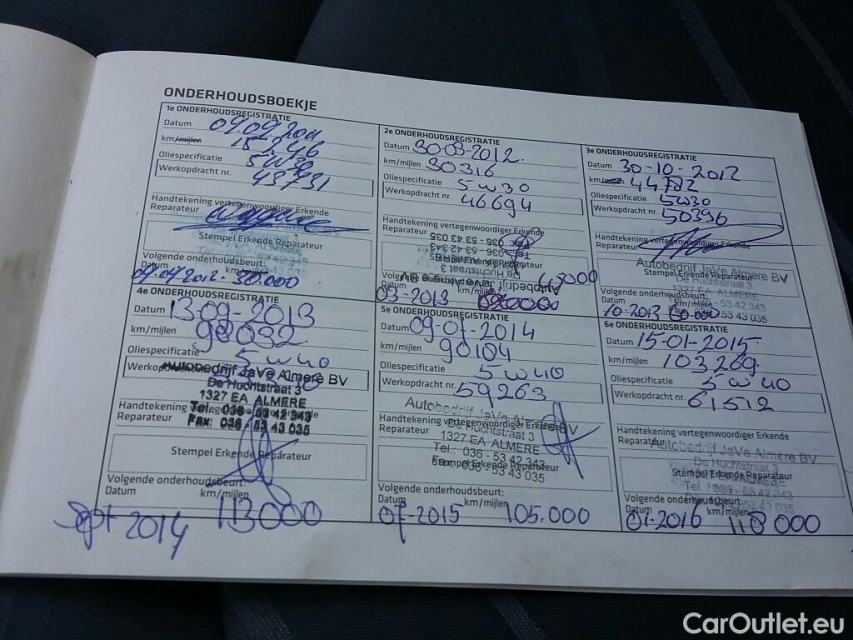 ONDERHOUDSBOEKJE
1e ONDERHOUDSREGISTRATIE
Datum 09.09.2011
km/mijlen 15246
Oliespecificatie 5W30
Werkopdracht nr. 43731
Handtekening vertegenwoordiger Erkende
Reparateur
Stempel Erkende Reparateur
Volgende onderhoudsbeurt:
Datum km/mijlen
09.09.2012- 30.000
2e ONDERHOUDSREGISTRATIE
Datum 30-03-2012.
km/mijlen 30316
Oliespecificatie 5W30
Werkopdracht nr. 46694
Handtekening vertegenwoordiger Erkende
Reparateur
036 - 53 43 035
036 - 53 42 343
De Huchtstraat 3
Autobedrijf JaVe Almere BV
Volgende
03-2013
3e ONDERHOUDSREGISTRATIE
Datum 30-10-2012
km/mijlen 44722
Oliespecificatie 5W30
Werkopdracht nr. 50396
Handtekening vertegenwoordiger Erkende
Reparateur
Autobedrijf JaVe Almere BV
Stempel Erkende Reparateur
De Huchtstraat 3
1327 EA ALMERE
Volgende onderhoudsbeurt:
Datum km/mijlen
10-2013 60.000
4e ONDERHOUDSREGISTRATIE
Datum 13-09-2013
km/mijlen
Oliespecificatie 5W40
Autobedrijf JaVe Almere BV
De Huchtstraat 3
1327 EA ALMERE
Handtekening
Tel: 036 - 53 42 343
Reparateur
Fax: 036 - 53 43 035
Stempel Erkende Reparateur
Volgende onderhoudsbeurt:
Datum km/mijlen
sept 2014 113000
5e ONDERHOUDSREGISTRATIE
Datum 09-01-2014
km/mijlen 90104
Oliespecificatie 5W40
Werkopdracht nr. 59263
Autobedrijf JaVe Almere BV
Handtekening vertegenwoordiger Erkende
De Huchtstraat 3
Reparateur
1327 EA ALMERE
Tel.: 036 - 53 42 343
Stempel Erkende Reparateur
Fax: 036 - 53 43 035
Volgende onderhoudsbeurt:
Datum km/mijlen
07-2015 105.000
6e ONDERHOUDSREGISTRATIE
Datum 15-01-2015
km/mijlen 103269.
Oliespecificatie 5W40
Werkopdracht nr. 61512
Handtekening vertegenwoordiger Erkende
Reparateur
Autobedrijf JaVe Almere BV
De Huchtstraat 3
Stempel Erkende Reparateur
Volgende onderhoudsbeurt:
Datum km/mijlen
01-2016 118000
CarOutlet.eu